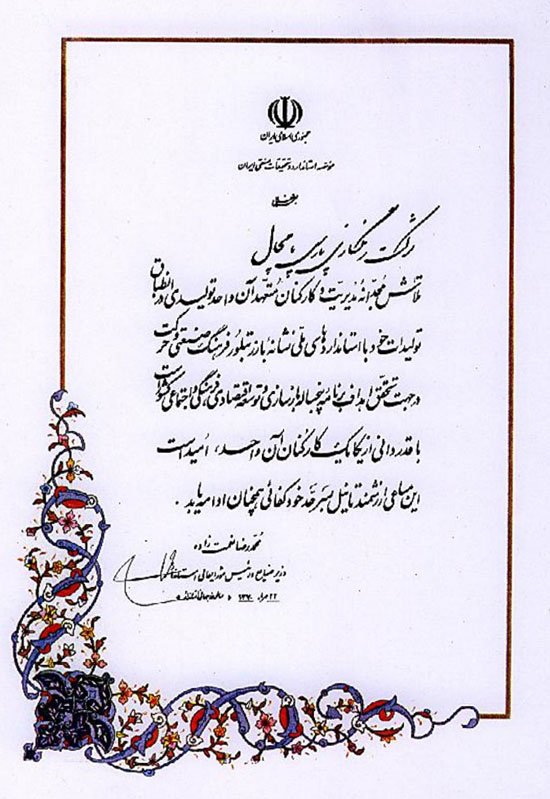 جمهوری اسلامی ایران
موسسه استاندارد و تحقیقات صنعتی ایران
بسمه تعالی
شرکت رنگسازی پارس پامچال
تلاش مجدّانهٔ مدیریت و کارکنان متعهد آن واحد تولیدی در انطباق
تولیدات خود با استانداردهای ملّی نشانه بارز تبلور فرهنگ صنعتی و حرکت
در جهت تحقق اهداف برنامه پنجساله بازسازی و توسعه اقتصادی، فرهنگی و اجتماعی کشور است
با قدردانی از یکایک کارکنان آن واحد، امید است
این مساعی ارزشمند تا نیل بسرحد خودکفائی همچنان ادامه یابد.
محمدرضا نعمت زاده
وزیر صنایع و رئیس شورایعالی استاندارد
۲۲ مهر ۱۳۷۰ «روز جهانی استاندارد»